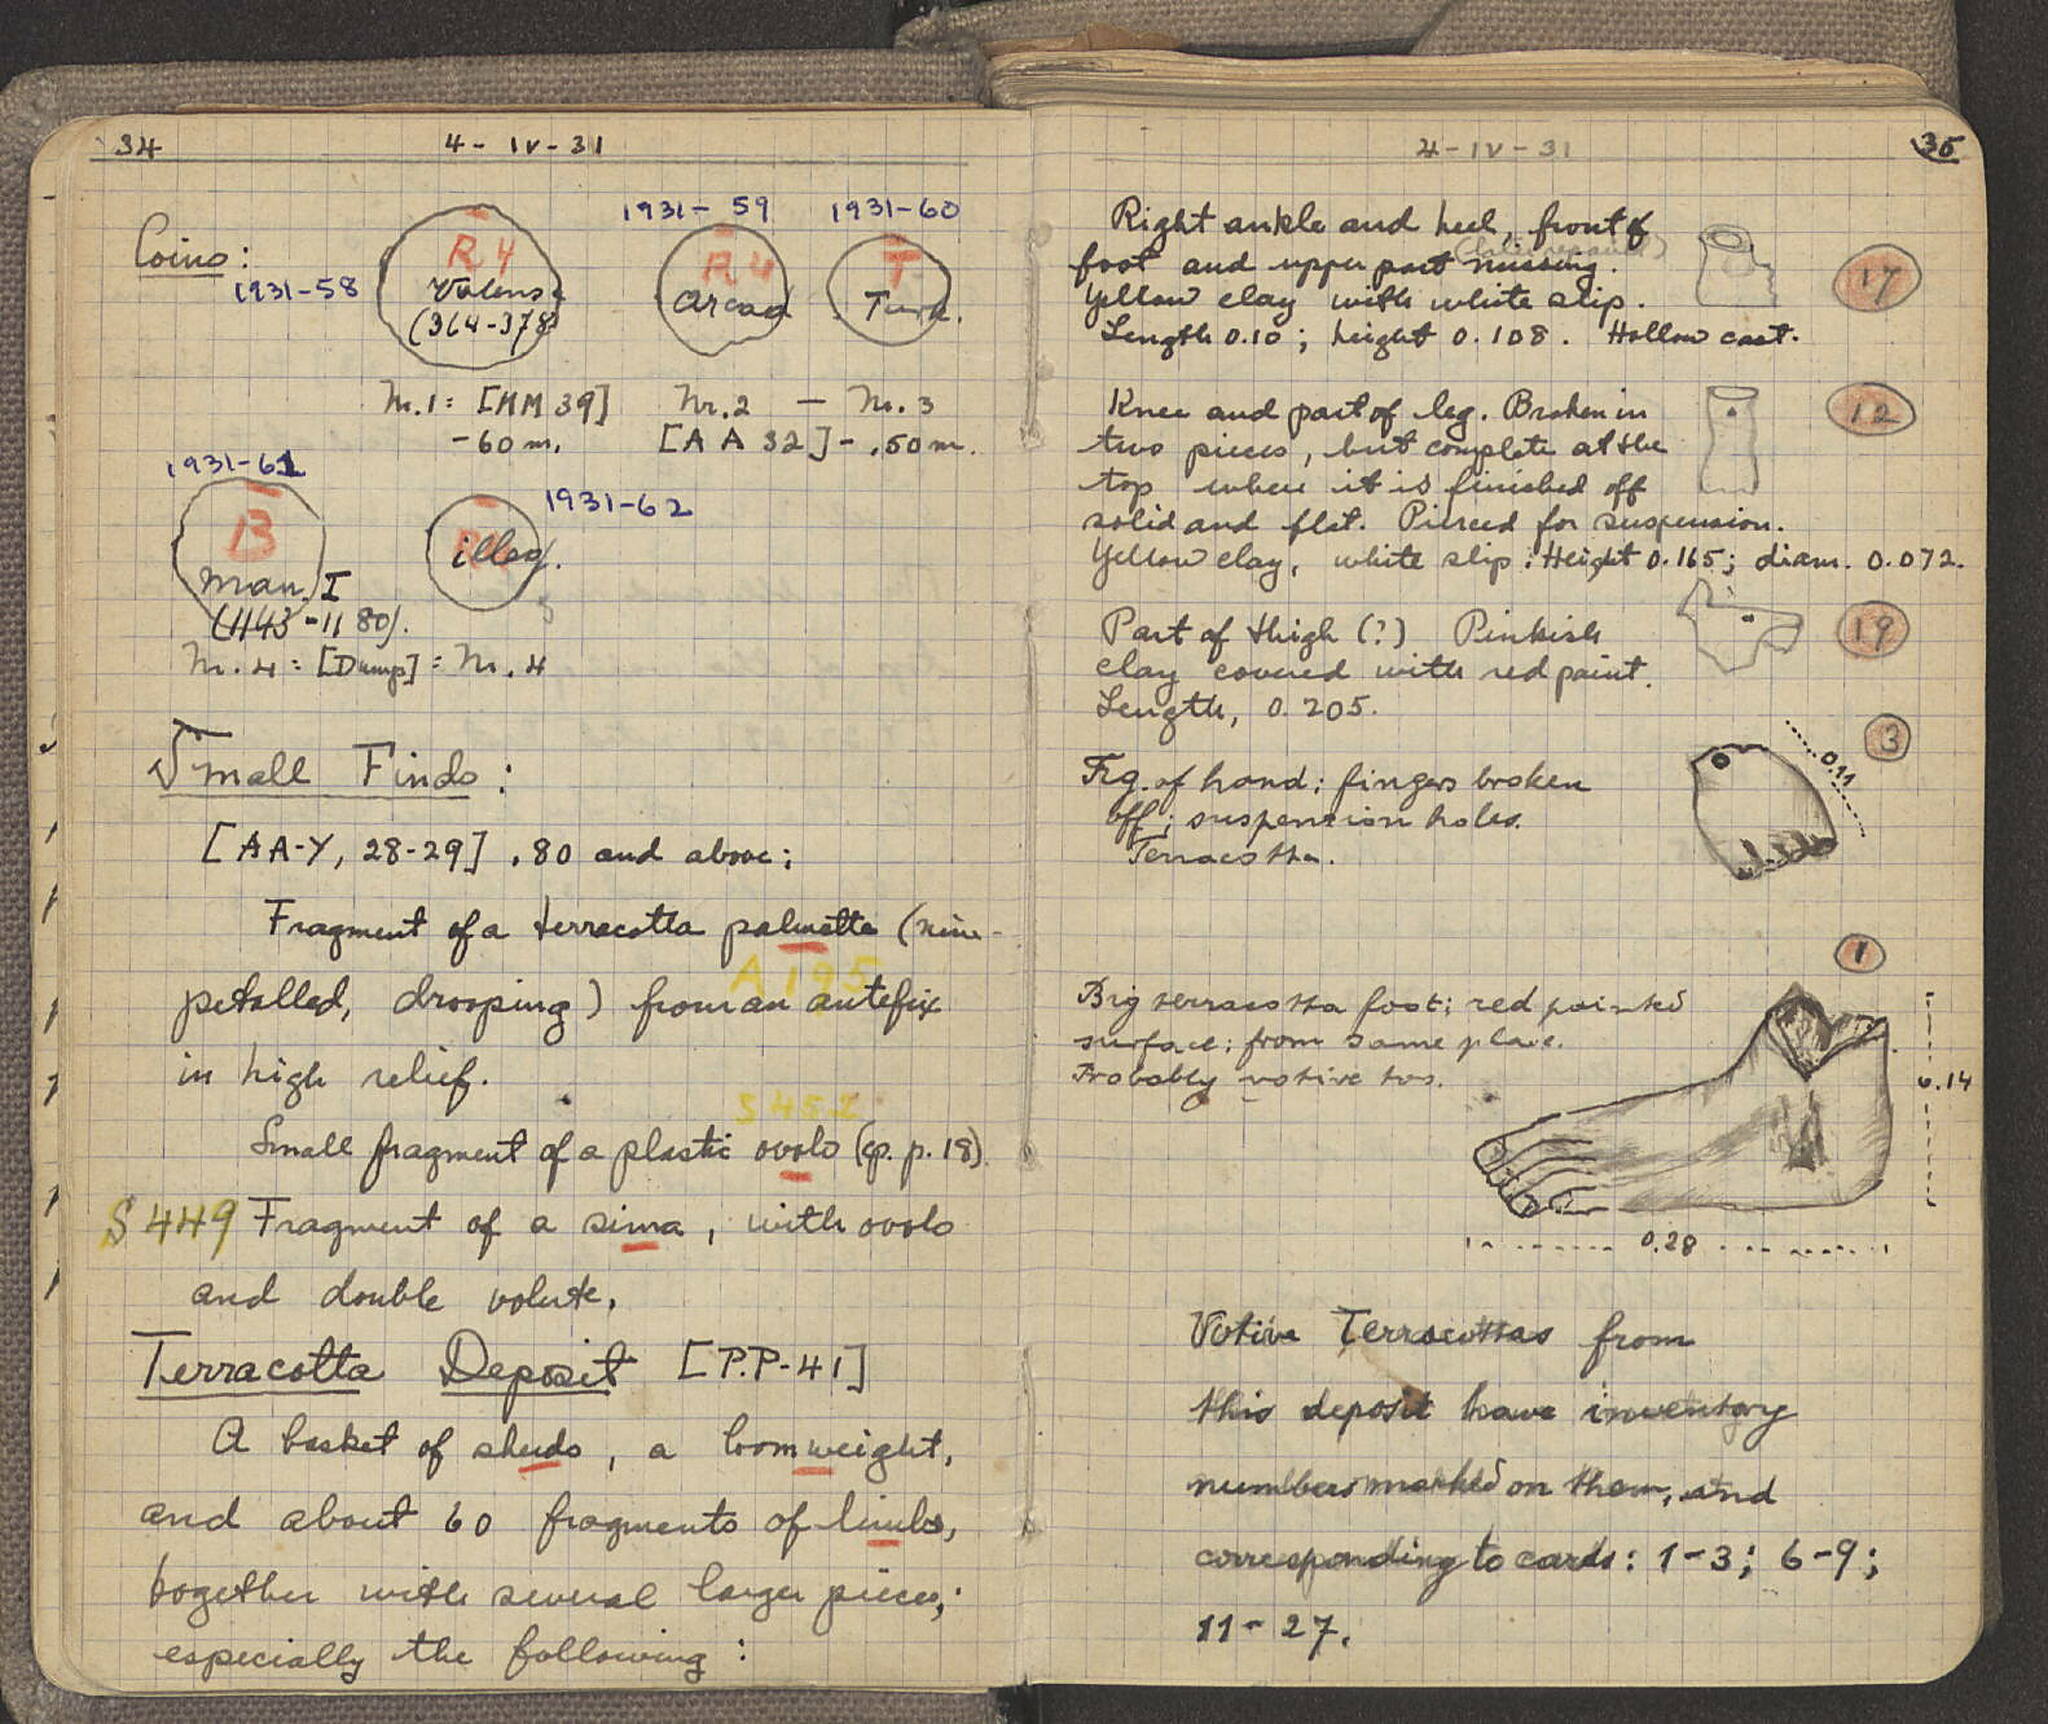 34
4-IV-31
Coins:
1931-58
R 4
Valens
(364-378)
1931-59
R 4
Arcad
1931-60
T
Turk.
Nr.1: [MM 39]
-60 m.
Nr.2 — Nr.3
[AA 32] - .50 m.
1931-61
B
Man. I
(1143-1180).
1931-62
illeg.
Nr. 4 = [Dump] = Nr. 4
Small Finds:
[AA-Y, 28-29] .80 and above:
Fragment of a terracotta palmette (nine-
A 195
petalled, drooping) from an antefix
in high relief.
S 452
Small fragment of a plastic ovolo (cp. p. 18)
S 449 Fragment of a sima, with ovolo
and double volute.
Terracotta Deposit [P.P-41]
A basket of sherds, a loomweight,
and about 60 fragments of limbs,
together with several larger pieces;
especially the following:
4-IV-31
35
Right ankle and heel, front of
foot and upper part missing.
Yellow clay with white slip.
Length 0.10; height 0.108. Hollow cast.
17
Knee and part of leg. Broken in
two pieces, but complete at the
top where it is finished off
solid and flat. Pierced for suspension.
Yellow clay, white slip: Height 0.165; diam. 0.072.
12
Part of thigh (?) Pinkish
clay covered with red paint.
Length, 0.205.
19
Frg. of hand: fingers broken
off; suspension holes.
Terracotta.
3
0.11
1
Big terracotta foot; red painted
surface; from same place.
Probably votive too.
0.14
0.28
Votive Terracottas from
this deposit have inventory
numbers marked on them, and
corresponding to cards: 1-3; 6-9;
11-27.